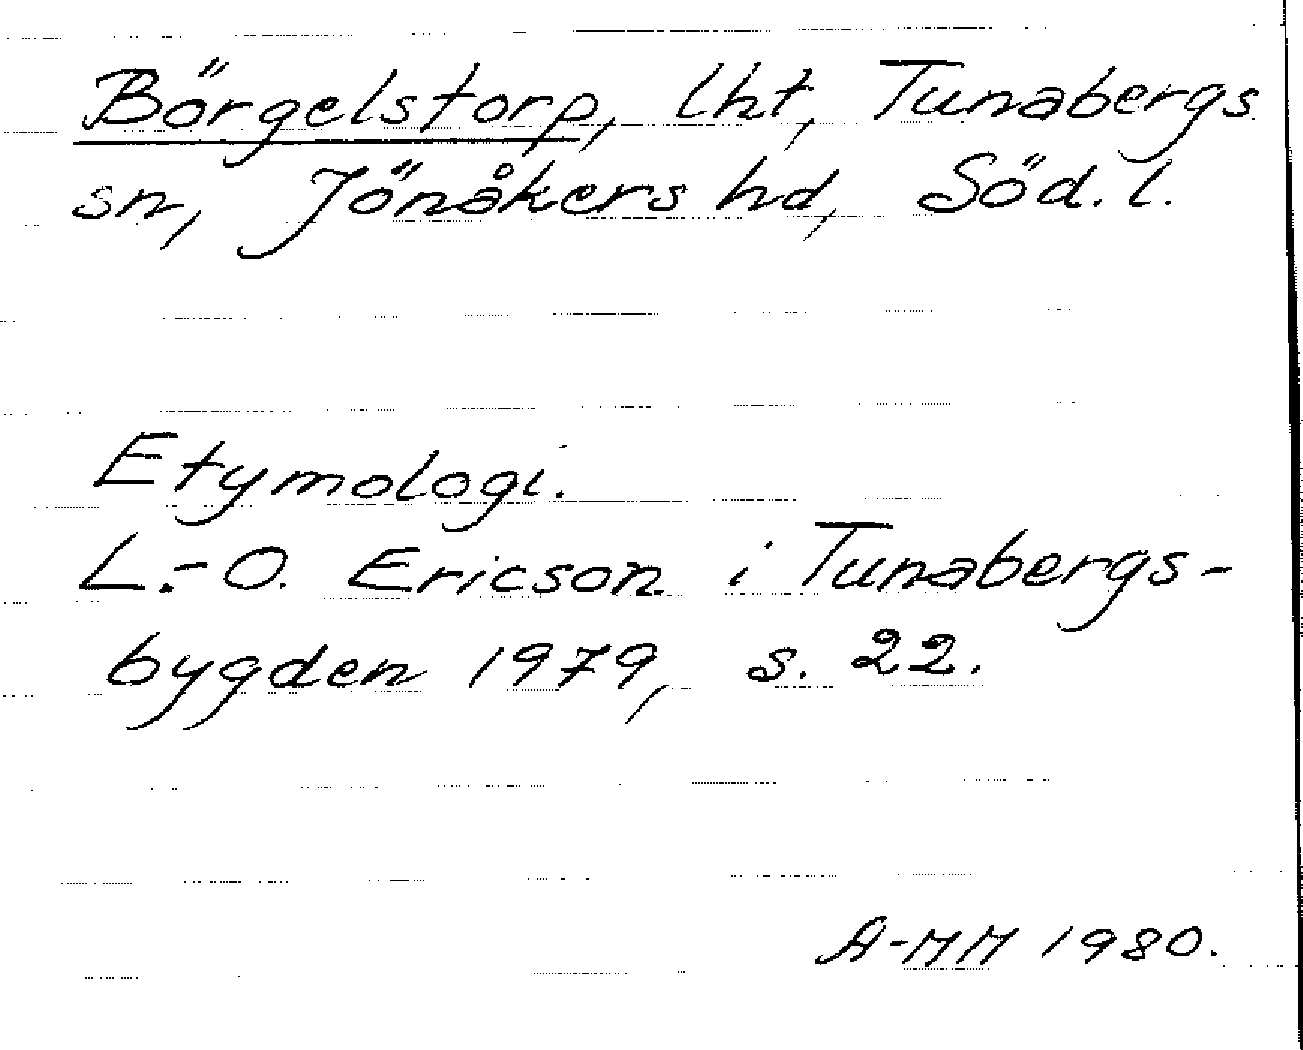 Börgelstorp, lht, Tunabergs
sn, Jönåkers hd, Söd. l.
Etymologi.
L.-O. Ericson i Tunabergs-
bygden 1979, s. 22.
A-MM 1980.